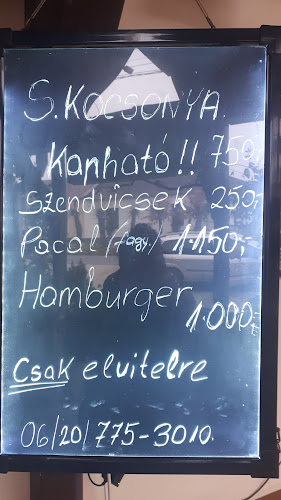 S. KOCSONYA.
Kapható!! 750,-
Szendvicsek 250,-
Pacal (fagy.) 1.150,-
Hamburger
1.000,-
Csak elvitelre
06/20/775-3010.